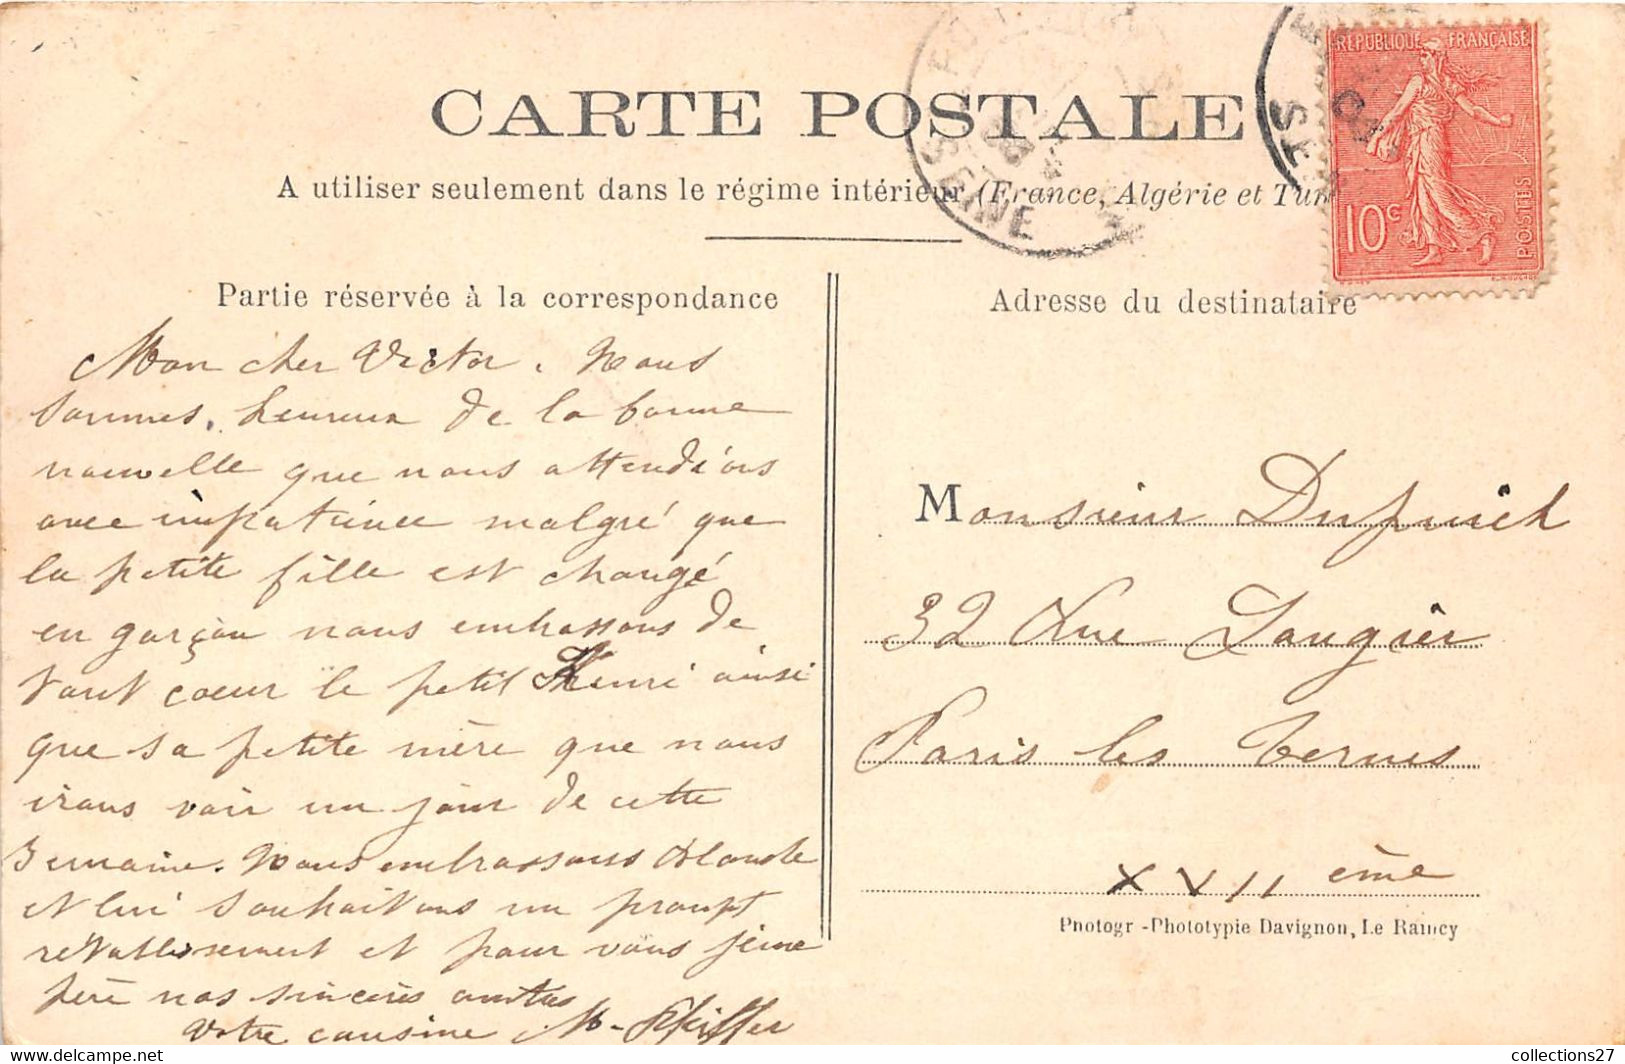 CARTE POSTALE
A utiliser seulement dans le régime intérieur (France, Algérie et Tun
RÉPUBLIQUE FRANÇAISE
10c
POSTES
SEINE
Partie réservée à la correspondance
Adresse du destinataire
Mon cher Victor. Nous
sommes, heureux de la bonne
nouvelle que nous attendions
avec impatience malgré que
la petite fille est changé
en garçon nous embrassons de
tout coeur le petit Henri ainsi
que sa petite mère que nous
irons voir un jour de cette
semaine. Nous embrassons
et lui souhaitons un prompt
retablissement et pour vous jeune
père nos sincères amitiés
Votre cousine M. Pfeiffer
Monsieur
32 Rue Laugier
Paris les Ternes
XVII ème
Photogr-Phototypie Davignon, Le Raincy
collections27